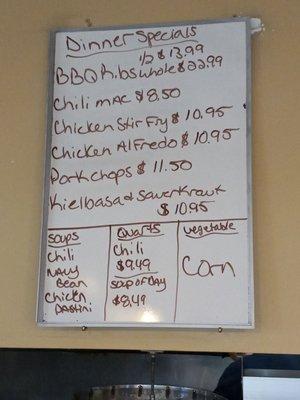 Dinner Specials
1/2 $13.99
BBQ Ribs whole $22.99
Chili mac $8.50
Chicken Stir Fry $10.95
Chicken Alfredo $10.95
Porkchops $11.50
Kielbasa & Sauerkraut
$10.95
Soups
Chili
Navy
Bean
Chicken
Pastini
Quarts
Chili
$9.49
Soup of Day
$8.49
Vegetable
Corn